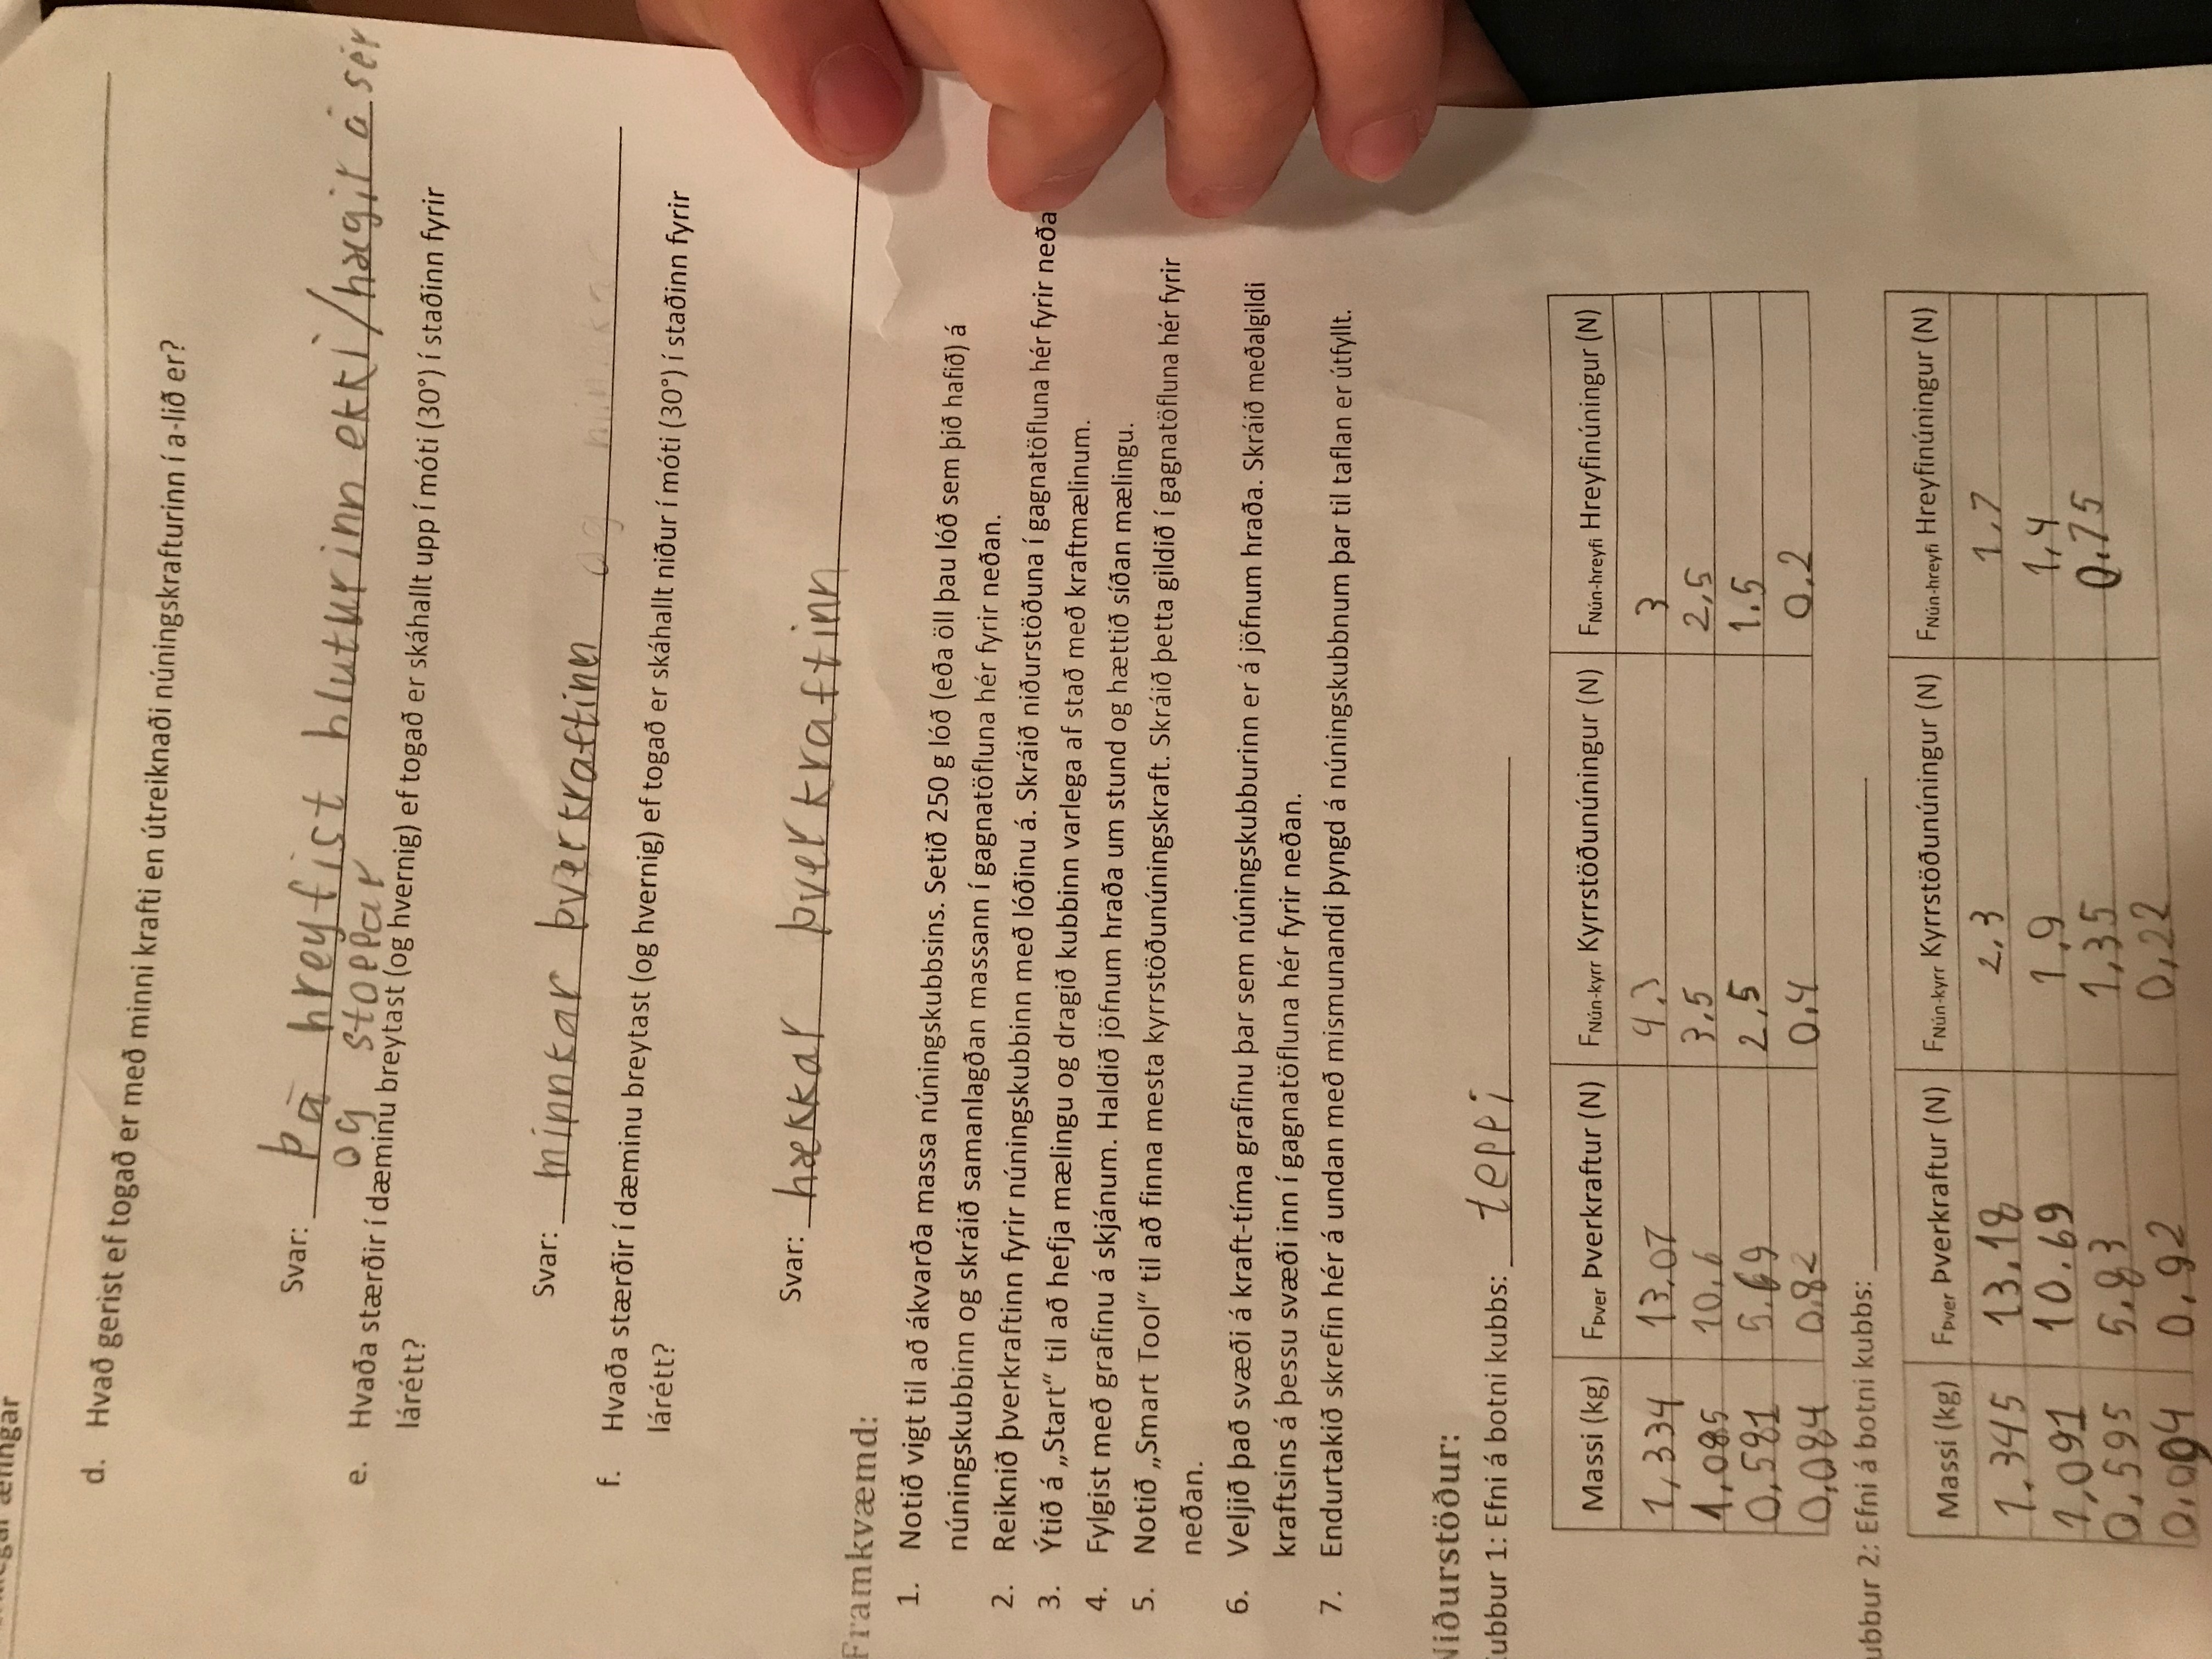 æfingar
d. Hvað gerist ef togað er með minni krafti en útreiknaði núningskrafturinn í a-lið er?
Svar: Þá hreyfist hluturinn ekki/hægir á sér
og stoppar
e. Hvaða stærðir í dæminu breytast (og hvernig) ef togað er skáhallt upp í móti (30°) í staðinn fyrir
lárétt?
Svar: minnkar þverkraftinn og
f. Hvaða stærðir í dæminu breytast (og hvernig) ef togað er skáhallt niður í móti (30°) í staðinn fyrir
lárétt?
Svar: hækkar þverkraftinn
Framkvæmd:
1. Notið vigt til að ákvarða massa núningskubbsins. Setið 250 g lóð (eða öll þau lóð sem þið hafið) á
núningskubbinn og skráið samanlagðan massann í gagnatöfluna hér fyrir neðan.
2. Reiknið þverkraftinn fyrir núningskubbinn með lóðinu á. Skráið niðurstöðuna í gagnatöfluna hér fyrir neða
3. Ýtið á „Start“ til að hefja mælingu og dragið kubbinn varlega af stað með kraftmælinum.
4. Fylgist með grafinu á skjánum. Haldið jöfnum hraða um stund og hættið síðan mælingu.
5. Notið „Smart Tool“ til að finna mesta kyrrstöðunúningskraft. Skráið þetta gildið í gagnatöfluna hér fyrir
neðan.
6. Veljið það svæði á kraft-tíma grafinu þar sem núningskubburinn er á jöfnum hraða. Skráið meðalgildi
kraftsins á þessu svæði inn í gagnatöfluna hér fyrir neðan.
7. Endurtakið skrefin hér á undan með mismunandi þyngd á núningskubbnum þar til taflan er útfyllt.
Niðurstöður:
ubbur 1: Efni á botni kubbs: teppi
Massi (kg) FÞver Þverkraftur (N) FNún-kyrr Kyrrstöðunúningur (N) FNún-hreyfi Hreyfinúningur (N)
1,334 13,07 4,3 3
1,085 10,6 3,5 2,5
0,581 5.69 2,5 1.5
0,084 0,82 0,4 0,2
ubbur 2: Efni á botni kubbs:
Massi (kg) FÞver Þverkraftur (N) FNún-kyrr Kyrrstöðunúningur (N) FNún-hreyfi Hreyfinúningur (N)
1.345 13.18 2,3 1,7
1,091 10.69 1,9 1,4
0,595 5,83 1,35 0,75
0,92 0,22